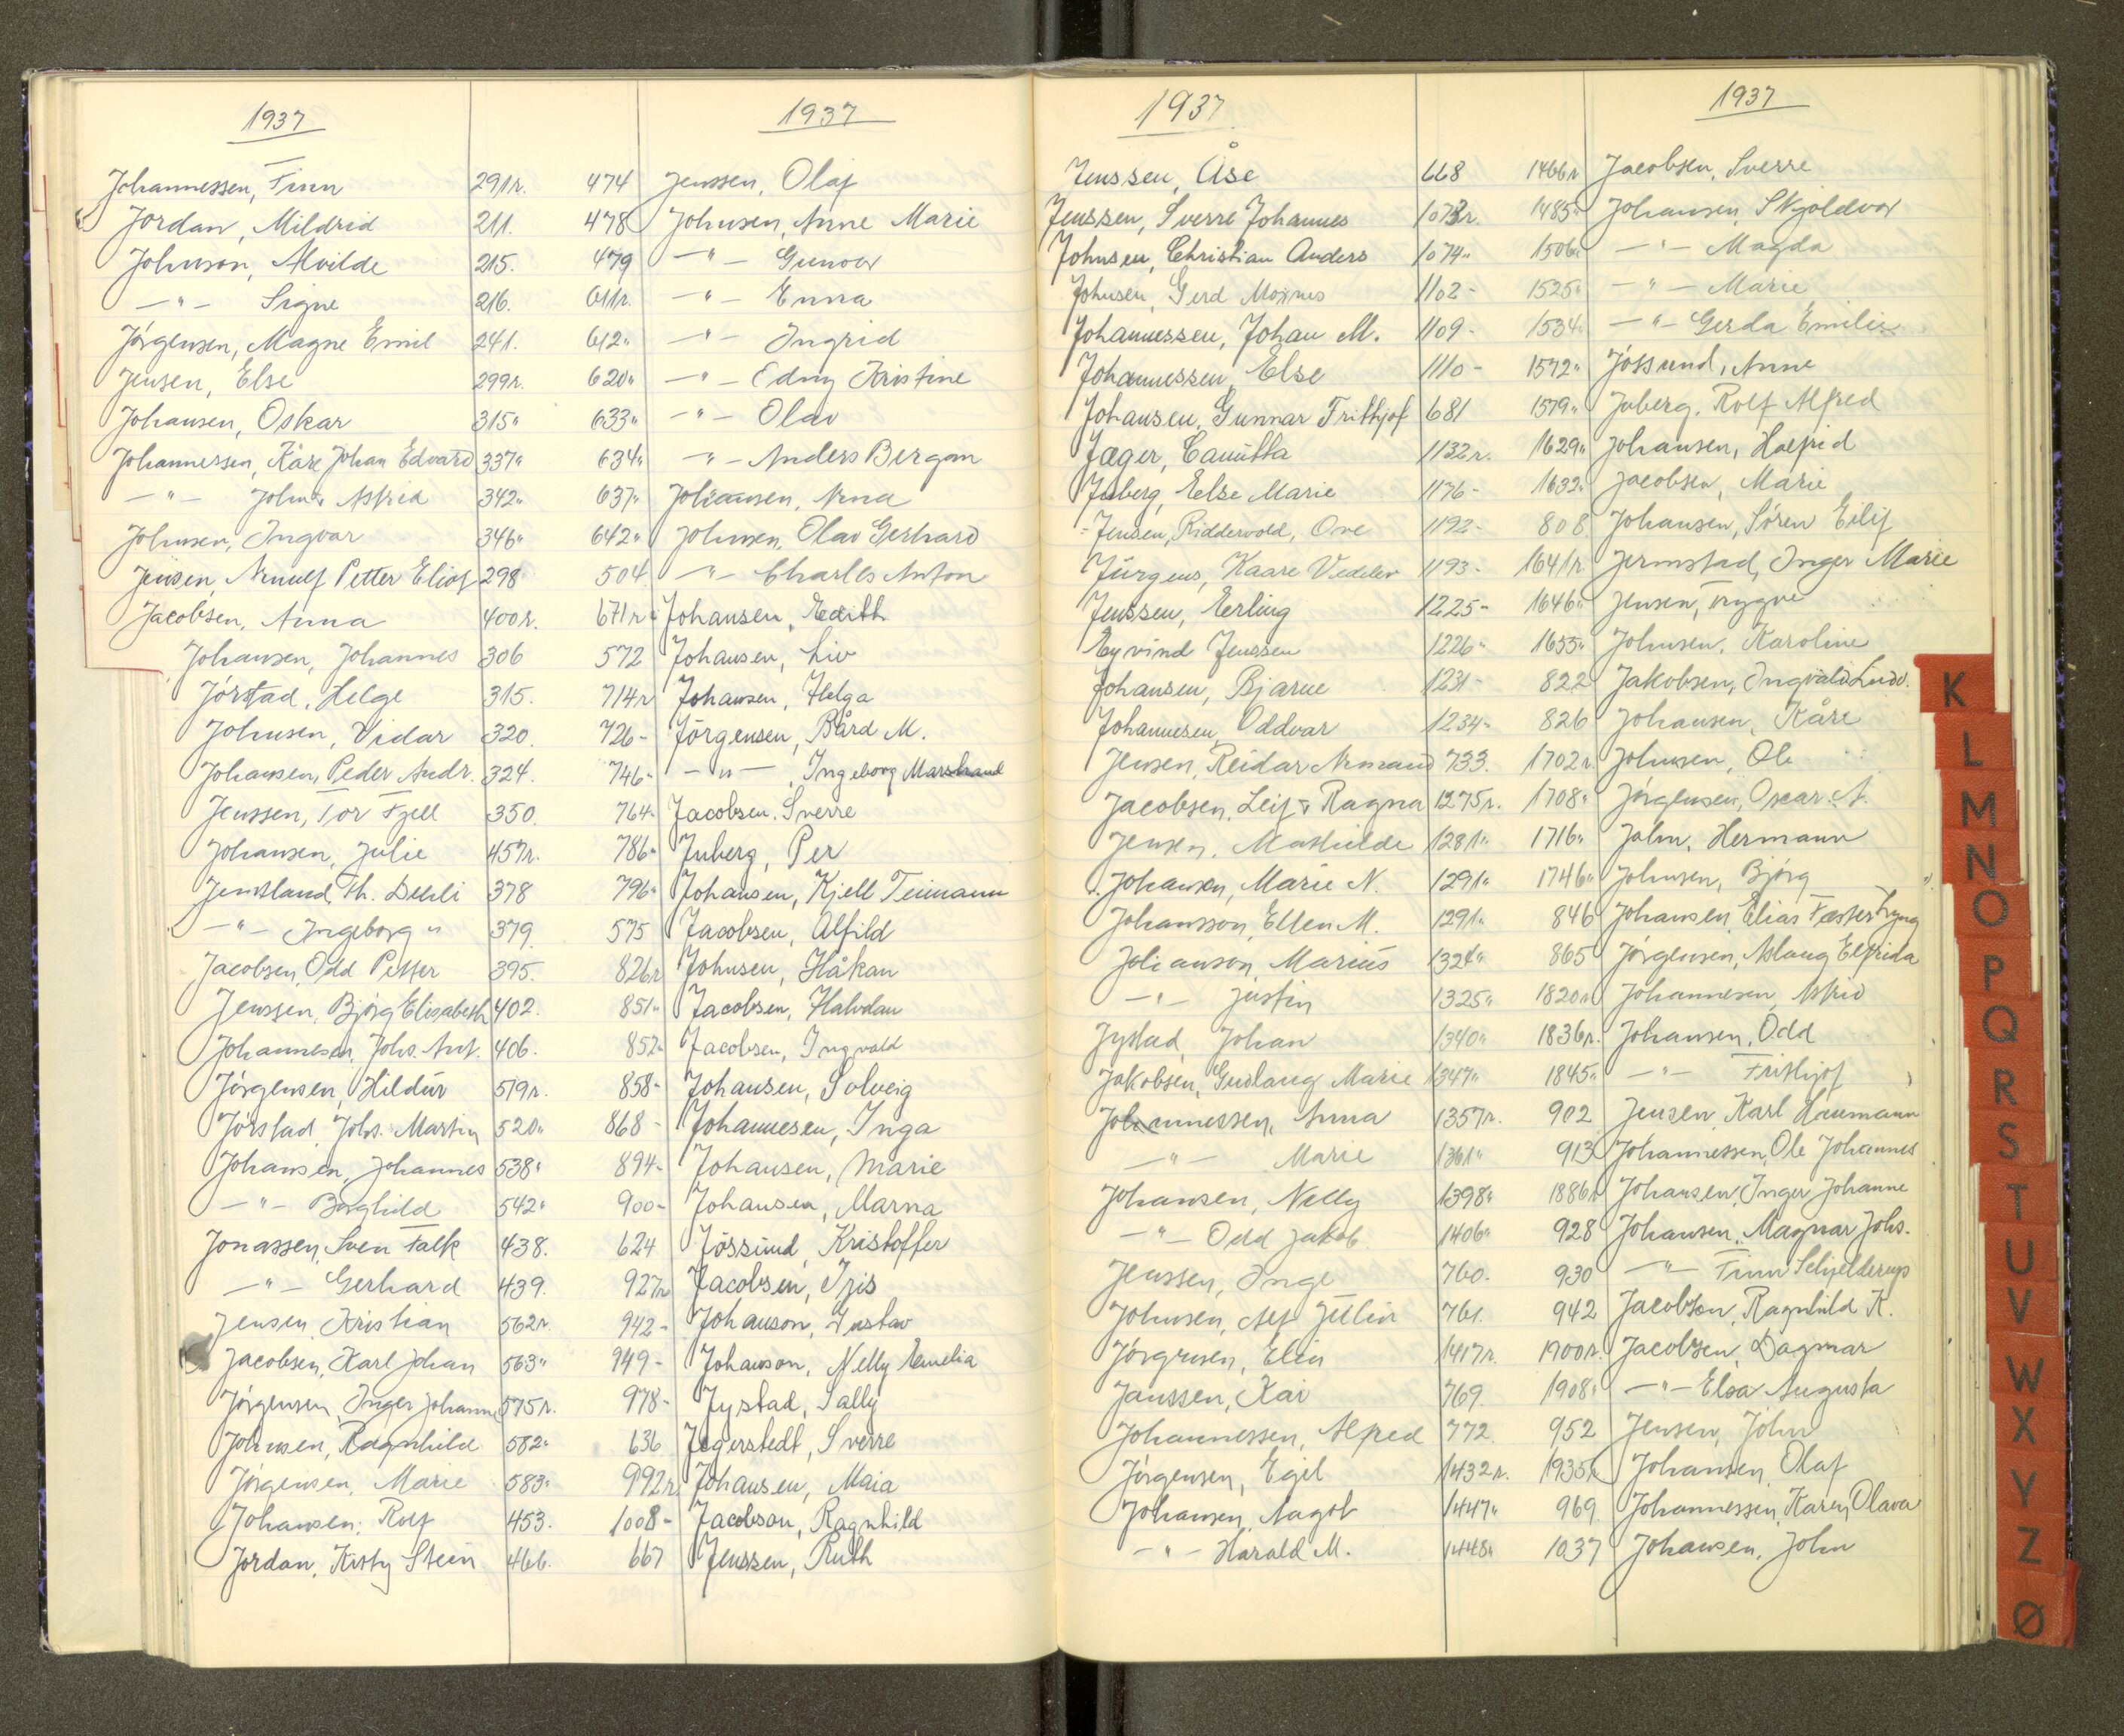 1937
Johannessen, Finn 291r.
Jordan, Mildrid 211.
Johnson, Alvilde 215.
—"— Signe 216.
Jörgensen, Magne Emil 241.
Jensen, Else 299r.
Johansen, Oskar 315"
Johannessen, Kåre Johan Edvard 337"
—"— Astrid 342"
Johnsen, Ingvar 346"
Jensen, Arnulf Petter Eliot 298
Jacobsen, Anna 400r.
Johansen, Johannes 306
Jörstad, Helge 315.
Johnsen, Vidar 320.
Johansen, Peder Andr. 324.
Jenssen, Tor Fjell 350.
Johansen, Julie 457r.
Jemtland, Th. Dehli 378
—"— Ingeborg " 379
Jacobsen, Odd Petter 395.
Jenssen, Bjørg Elisabeth 402.
Johannesen, Johs. Ant. 406.
Jörgensen, Hildur 519r.
Jörstad, Johs. Martin 520"
Johansen, Johannes 538"
—"— Borghild 542"
Jonassen, Sven Falk 438.
—"— Gerhard 439.
Jensen, Kristian 562r.
Jacobsen, Karl Johan 563"
Jörgensen, Inger Johanne 575r.
Johnsen, Ragnhild 582"
Jörgensen, Marie 583"
Johansen, Rolf 453.
Jordan, Kirsty Stein 466.
1937
474 Jenssen, Olaf
478 Johnsen, Anne Marie
479 —"— Gunvor
611r. —"— Enna
612" —"— Ingrid
620" —"— Edny Kristine
633" —"— Olav
634" —"— Anders Bergan
637" Johansen, Anna
642" Johnsen, Olav Gerhard
504 —"— Charles Anton
671r Johansen, Edith
572 Johansen, Liv
714r Johansen, Helga
726- Jörgensen, Bård M.
746- —"— Ingeborg Marstrand
764- Jacobsen, Sverre
786- Juberg, Per
796- Johansen, Kjell Teimann
575 Jacobsen, Alfild
826r Johnsen, Håkan
851- Jacobsen, Halvdan
852- Jacobsen, Ingvald
858- Johansen, Solveig
868- Johannesen, Inga
894- Johansen, Marie
900- Johansen, Marna
624 Jössund, Kristoffer
927r Jacobsen, Iris
942- Johanson, Gustav
949- Johanson, Nelly Emelia
978- Jystad, Sally
636 Jegerstedt, Sverre
992r Johansen, Maia
1008- Jacobson, Ragnhild
667 Jenssen, Ruth
1937
Jenssen, Åse 668
Jenssen, Sverre Johannes 1073r.
Johnsen, Christian Anders 1074"
Johnsen, Gerd Moxnes 1102-
Johannessen, Johan M. 1109-
Johannessen, Else 1110-
Johansen, Gunnar Frithjof 681
Jæger, Camitta 1132r.
Juberg, Else Marie 1176-
Jensen, Riddervold, Ove 1192-
Jürgens, Kaare Vedeler 1193-
Jenssen, Erling 1225-
Eyvind Jenssen 1226"
Johansen, Bjarne 1231-
Johannesen, Oddvar 1234-
Jensen, Reidar Armand 733.
Jacobsen, Leif & Ragna 1275r.
Jensen, Mathilde 1281"
Johansen, Marie N. 1291"
Johansson, Ellen M. 1291"
Johanson, Marius 1324"
—"— Justin 1325"
Jystad, Johan 1340"
Jakobsen, Gudlaug Marie 1347"
Johannessen, Anna 1357r.
—"— Marie 1361"
Johansen, Nelly 1398"
—"— Odd Jakob 1406"
Jenssen, Inge 760.
Johnsen, Alf Julin 761.
Jörgensen, Elin 1417r.
Janssen, Kai 769.
Johannessen, Alfred 772.
Jörgensen, Egil 1432r.
Johansen, Aagot 1447"
—"— Harald M. 1448"
1937
1466r Jacobsen, Sverre
1485" Johansen, Skjoldvor
1506" —"— Magda
1525" —"— Marie
1534" —"— Gerda Emilie
1572" Jössund, Anne
1579" Juberg, Rolf Alfred
1629" Johansen, Halfrid
1632" Jacobsen, Marie
808 Johansen, Sören Eilif
1641r. Jermstad, Inger Marie
1646" Jensen, Trygve
1655" Johnsen, Karoline
822 Jakobsen, Ingvald Ludv.
826 Johansen, Kåre
1702r Johnsen, Ole
1708" Jörgensen, Oscar A.
1716" Jahn, Hermann
1746" Johnsen, Bjørg
846 Johansen, Elias Fæster Lyng
865 Jörgensen, Aslaug Elfrida
1820r Johannesen, Astrid
1836r. Johansen, Odd
1845" —"— Frithjof
902 Jensen, Karl Haumann
913 Johannessen, Ole Johannes
1886r Johansen, Inger Johanne
928 Johansen, Magnar Johs.
930 —"— Finn Schjelderup
942 Jacobson, Ragnhild K.
1900r. Jacobsen, Dagmar
1908" —"— Elsa Augusta
952 Jensen, John
1935r Johansen, Olaf
969 Johannessen, Karen Olava
1037 Johansen, John
K
L
M
N
O
P
Q
R
S
T
U
V
W
X
Y
Z
Ø